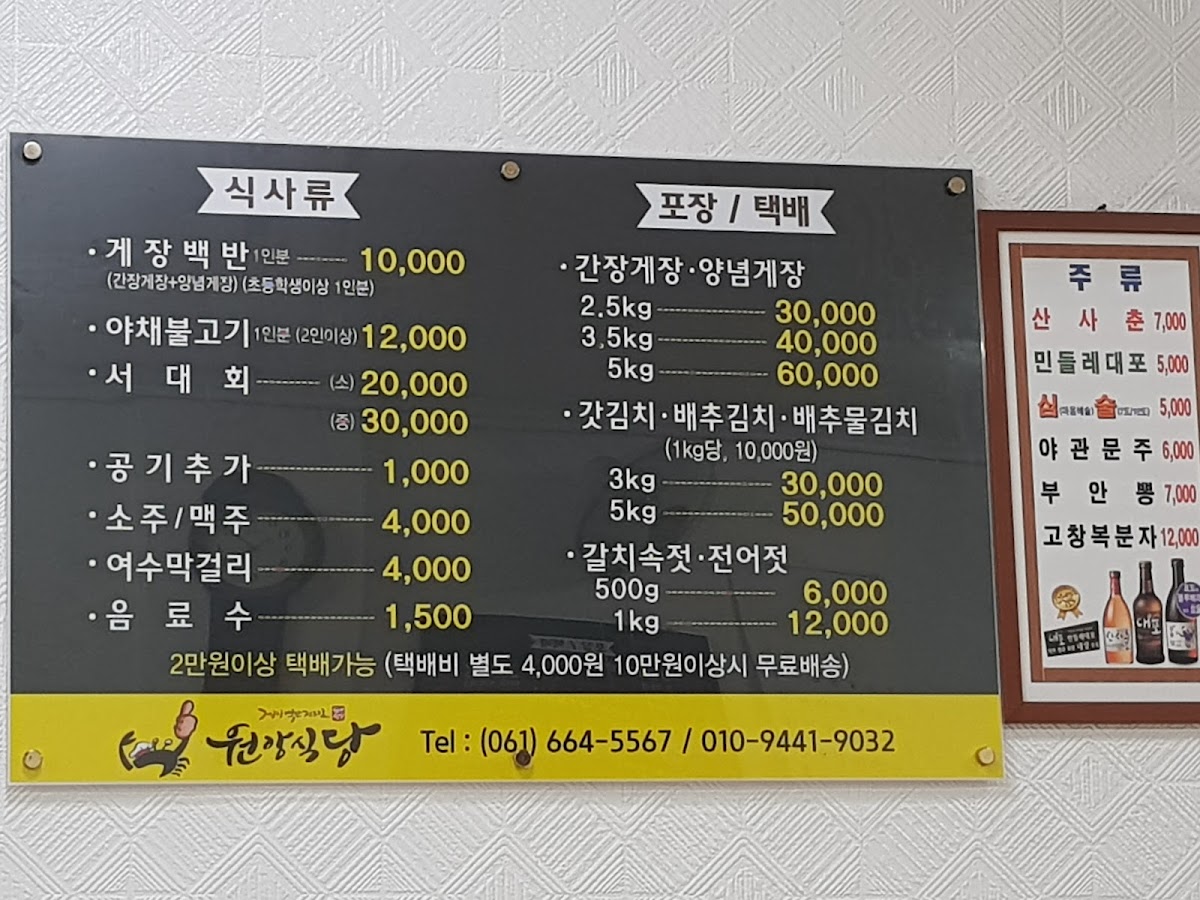 식사류
· 게장백반 1인분 10,000
(간장게장+양념게장) (초등학생이상 1인분)
· 야채불고기 1인분 (2인이상) 12,000
· 서대회 (소) 20,000
(중) 30,000
· 공기추가 1,000
· 소주/맥주 4,000
· 여수막걸리 4,000
· 음료수 1,500
포장 / 택배
· 간장게장·양념게장
2.5kg 30,000
3.5kg 40,000
5kg 60,000
· 갓김치·배추김치·배추물김치
(1kg당, 10,000원)
3kg 30,000
5kg 50,000
· 갈치속젓·전어젓
500g 6,000
1kg 12,000
2만원이상 택배가능 (택배비 별도 4,000원 10만원이상시 무료배송)
원앙식당
Tel : (061) 664-5567 / 010-9441-9032
주류
산사춘 7,000
민들레대포 5,000
심술 5,000
야관문주 6,000
부안뽕 7,000
고창복분자 12,000
대포